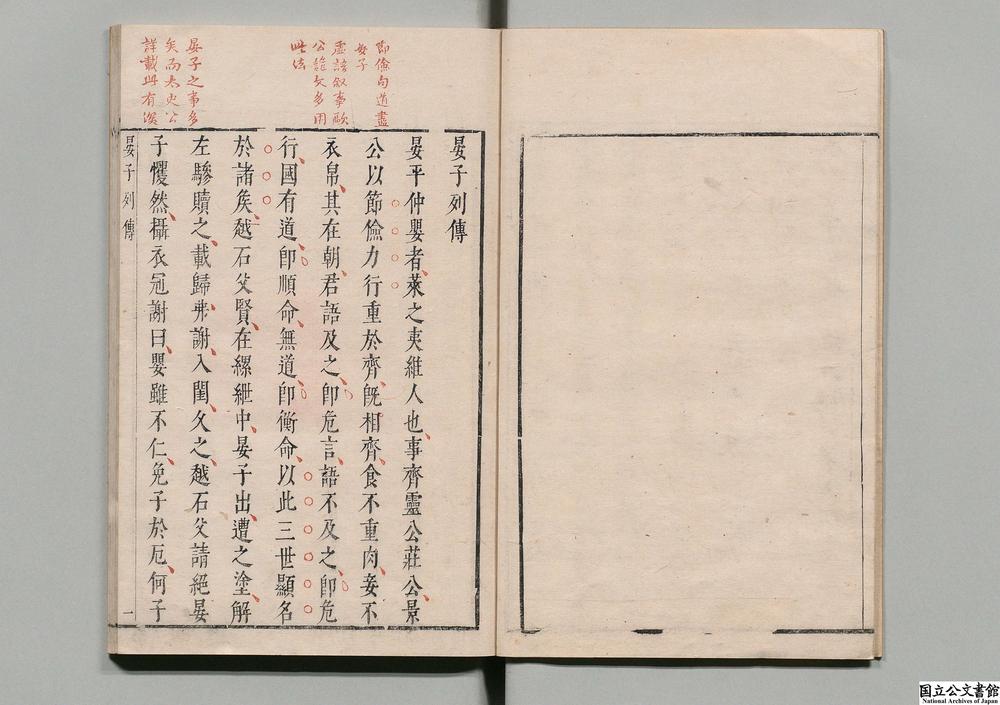 節儉句道盡
晏子
虛語叙事歐
公誌文多用
此法
晏子之事多
矣而太史公
詳載此有深
晏子列傳
晏平仲嬰者萊之夷維人也事齊靈公莊公景
公以節儉力行重於齊既相齊食不重肉妾不
衣帛其在朝君語及之即危言語不及之即危
行國有道即順命無道即衡命以此三世顯名
於諸矦越石父賢在縲紲中晏子出遭之塗解
左驂贖之載歸弗謝入閨久之越石父請絕晏
子戄然攝衣冠謝曰嬰雖不仁免子於厄何子
晏子列傳
一
国立公文書館
National Archives of Japan